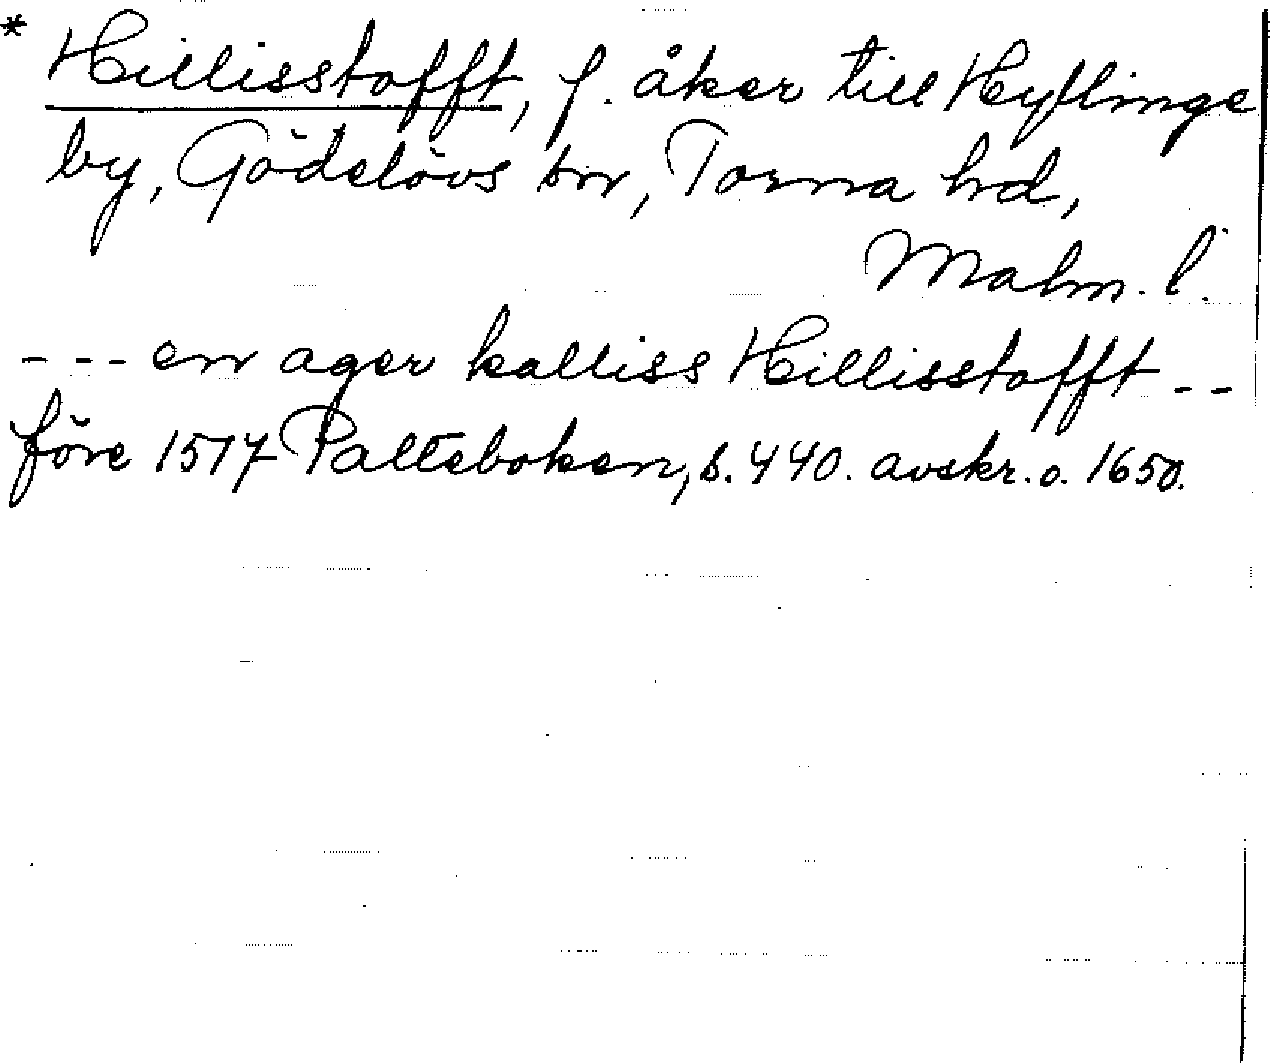 * Hillisstofft, f. åker till Hyflinge
by, Gödelövs sn, Torna hd,
Malm. l.
--- en ager kalliss Hillisstofft --
före 1517 Palteboken, s. 440. avskr. o. 1650.